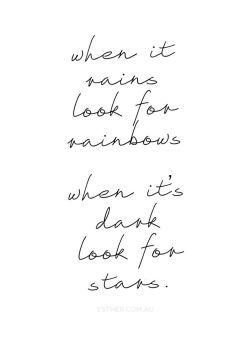 when it
rains
look for
rainbows
when it's
dark
look for
stars.
ESTHER.COM.AU